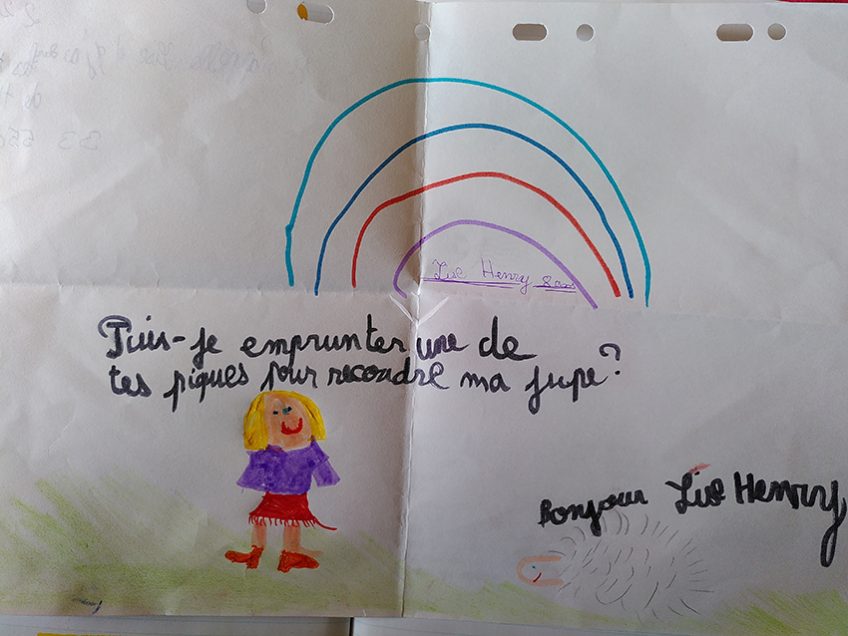 Lise Henry 8 ans
Puis-je emprunter une de
tes piques pour recoudre ma jupe?
Bonjour Lise Henry